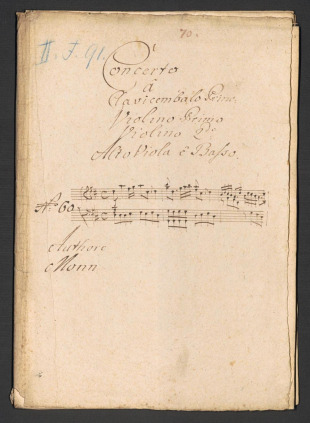 70.
II. J. 91.
Concerto
â
Clavicembalo Primo,
Violino Primo
Violino 2do
Alto Viola è Basso.
No: 60.
Authore
Monn